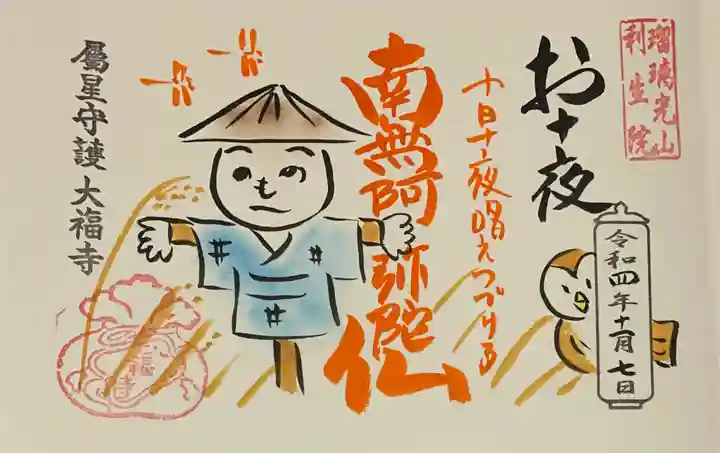 瑠璃光山
利生院
お十夜
令和四年十月七日
十日十夜唱えつづける
南無阿弥陀仏
属星守護 大福寺